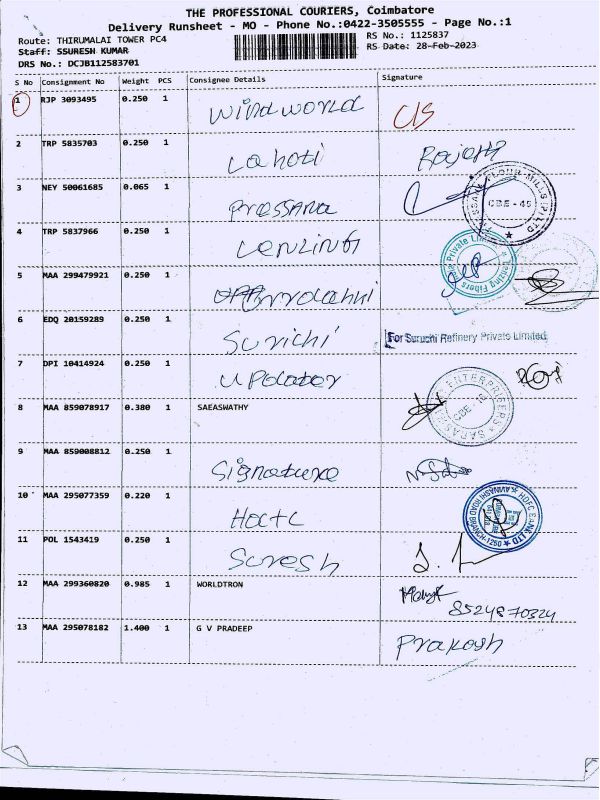 THE PROFESSIONAL COURIERS, Coimbatore
Delivery Runsheet - MO - Phone No.:0422-3505555 - Page No.:1
Route: THIRUMALAI TOWER PC4
RS No.: 1125837
Staff: SSURESH KUMAR
RS Date: 28-Feb-2023
DRS No.: DCJB112583701
S No Consignment No Weight PCS Consignee Details Signature
1 RJP 3093495 0.250 1 Windworld CIS
2 TRP 5835703 0.250 1 Lahoti Rajesh
3 NEY 50061685 0.065 1 Prassana
CBE - 45
4 TRP 5837966 0.250 1 Lenzing
5 MAA 299479921 0.250 1
6 EDQ 20159289 0.250 1 Surichi For Suruchi Refinery Private Limited
7 DPI 10414924 0.250 1 Updater
8 MAA 859078917 0.380 1 SAEASWATHY
ENTERPRISES
9 MAA 859008812 0.250 1 Signature
10 MAA 295077359 0.220 1
HDFC BANK LTD
AVINASHI ROAD BRANCH-1250
11 POL 1543419 0.250 1 Suresh
12 MAA 299360820 0.985 1 WORLDTRON
8524870324
13 MAA 295078182 1.400 1 G V PRADEEP Prakash